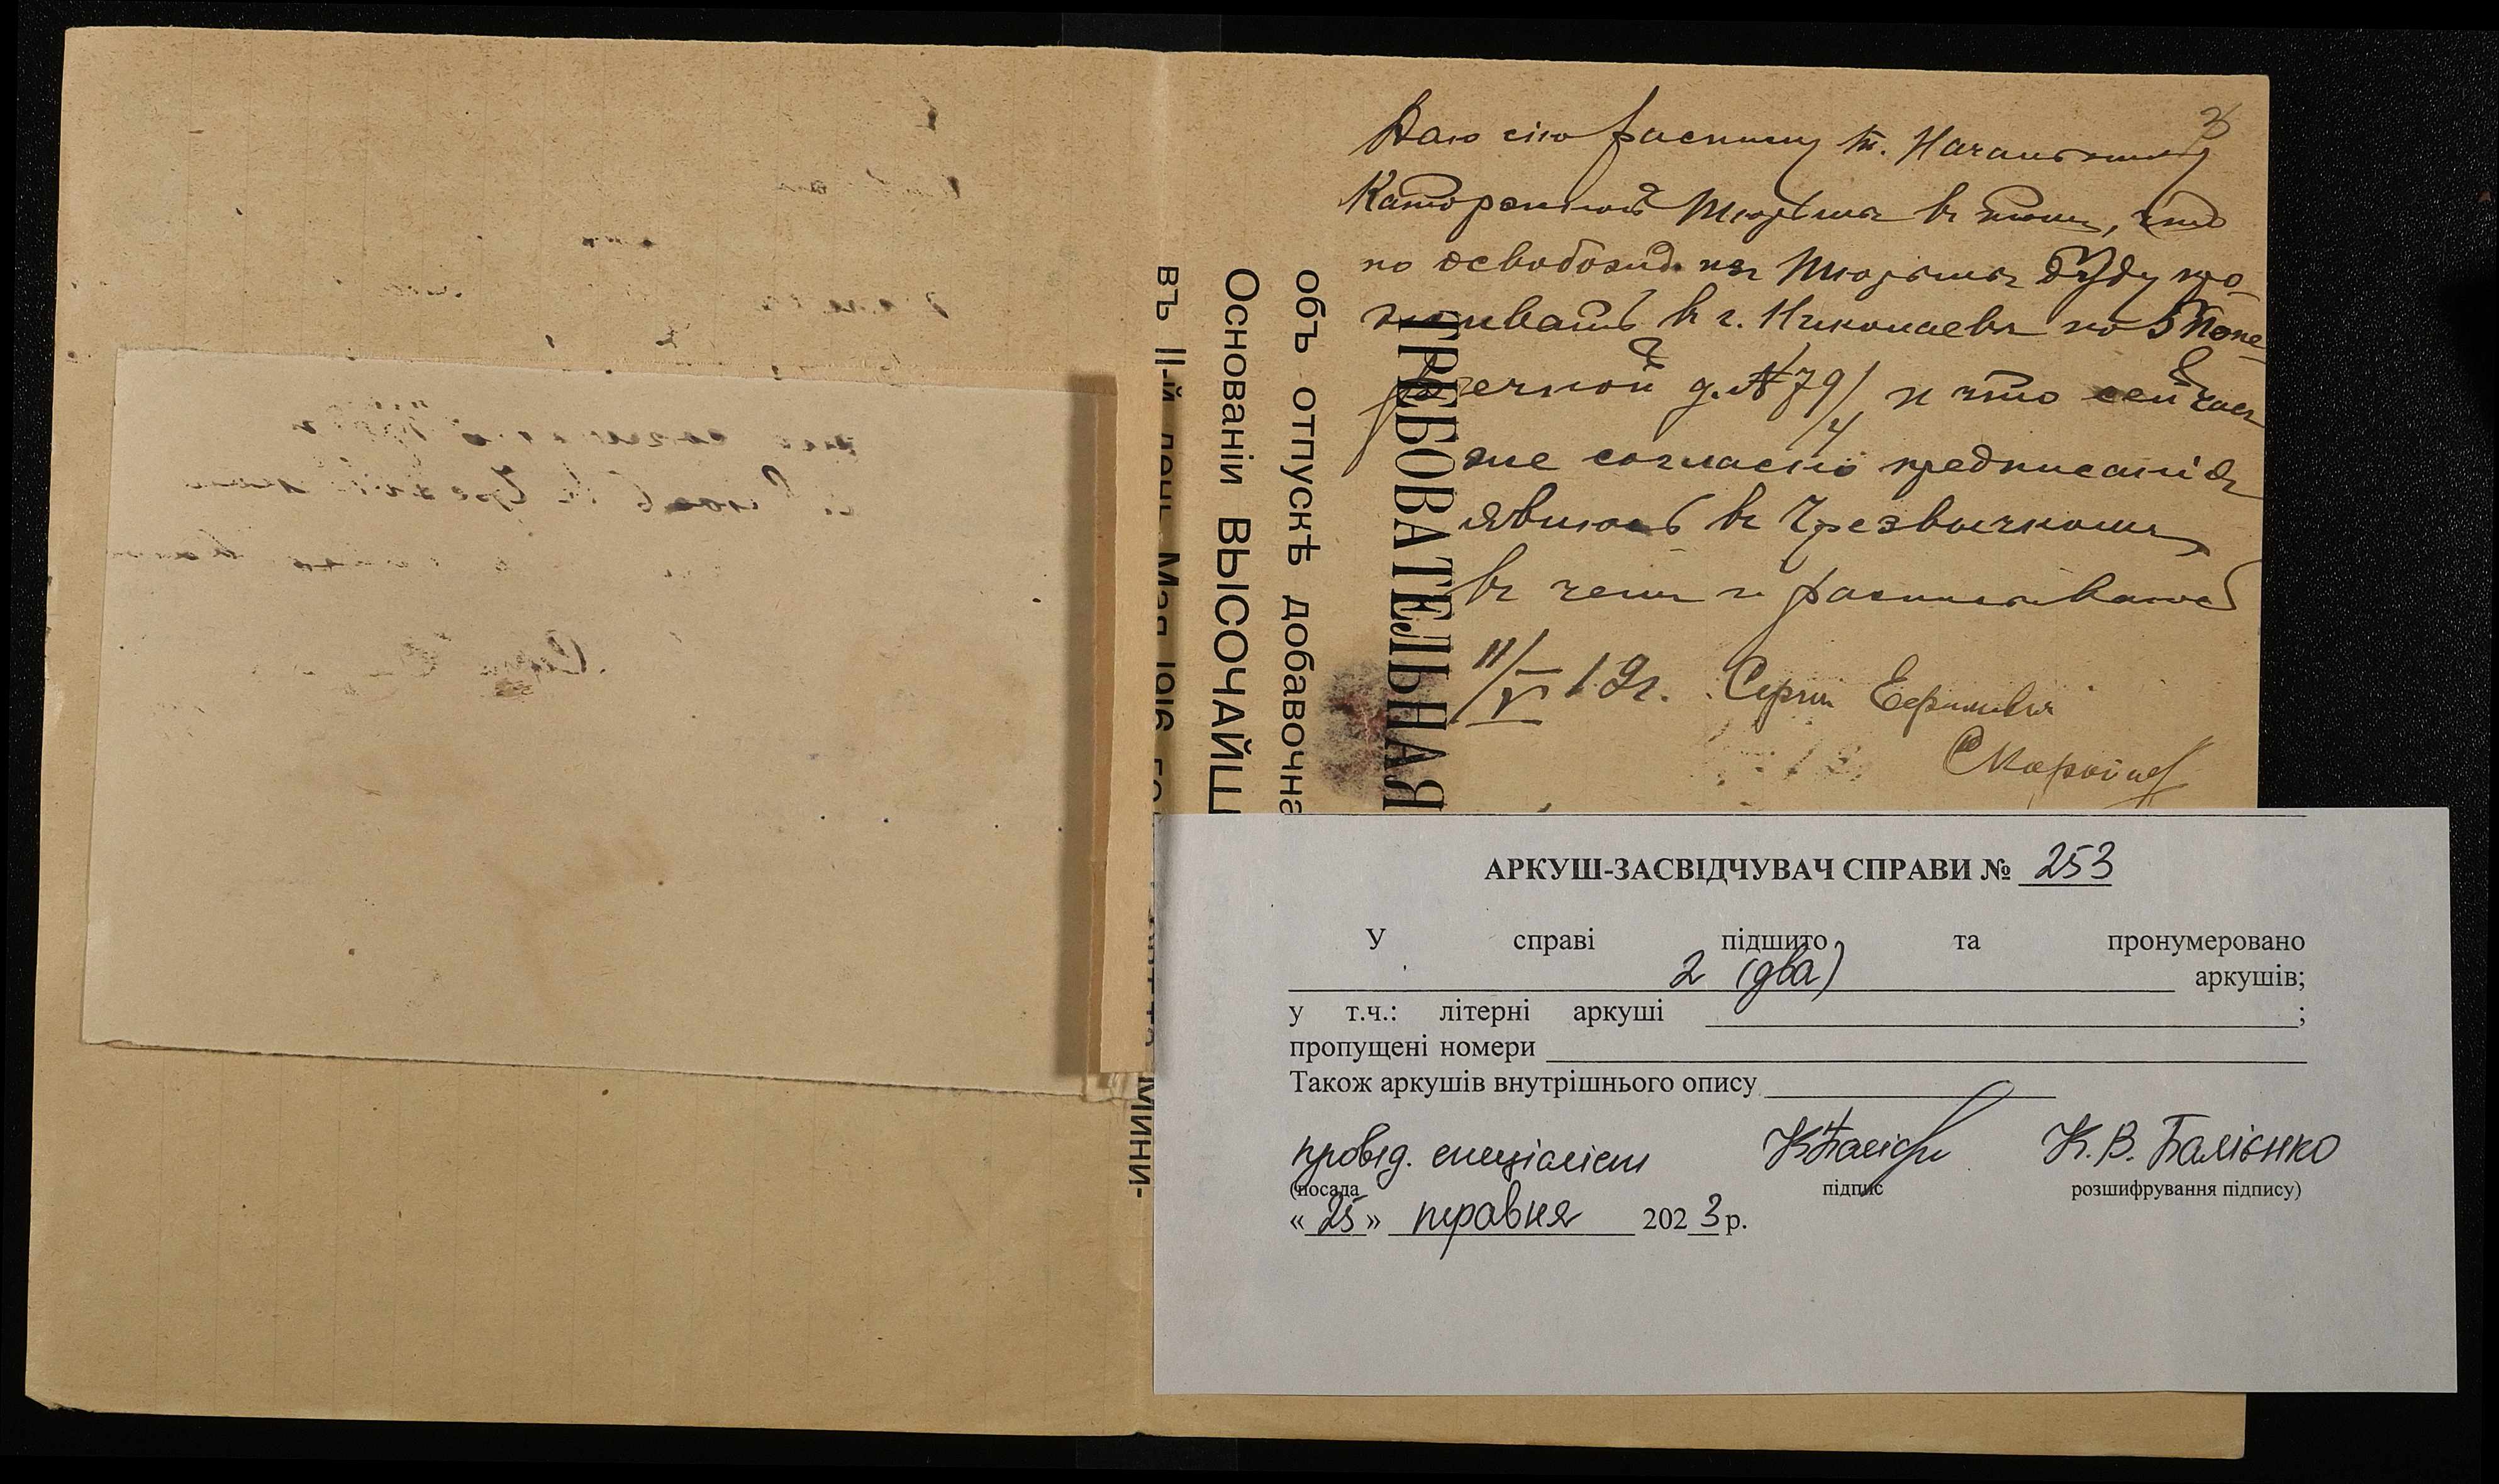 3
Даю сію росписку т. Начальнику
Каторжной Тюрьмы въ томъ, что
по освобожд. изъ Тюрьмы буду про-
живать в г. Николаевѣ по 5 Попе-
речной д. № 79/4 и что сейчасъ
же согласно предписанія
явлюсь въ Чрезвычкомъ
въ чемъ и расписываюсь
11/V 19г. Сергѣй Ефимовичъ
ТРЕБОВАТЕЛЬНАЯ
объ отпускѣ добавочна
Основаніи ВЫСОЧАЙШ
въ 11-й день Мая 1916 го
мини-
АРКУШ-ЗАСВІДЧУВАЧ СПРАВИ № 253
У справі підшито та пронумеровано
2 (два) аркушів;
у т.ч.: літерні аркуші ;
пропущені номери
Також аркушів внутрішнього опису
провід. спеціаліст К. В. Балієнко
(посада підпис розшифрування підпису)
« 25 » травня 2023 р.